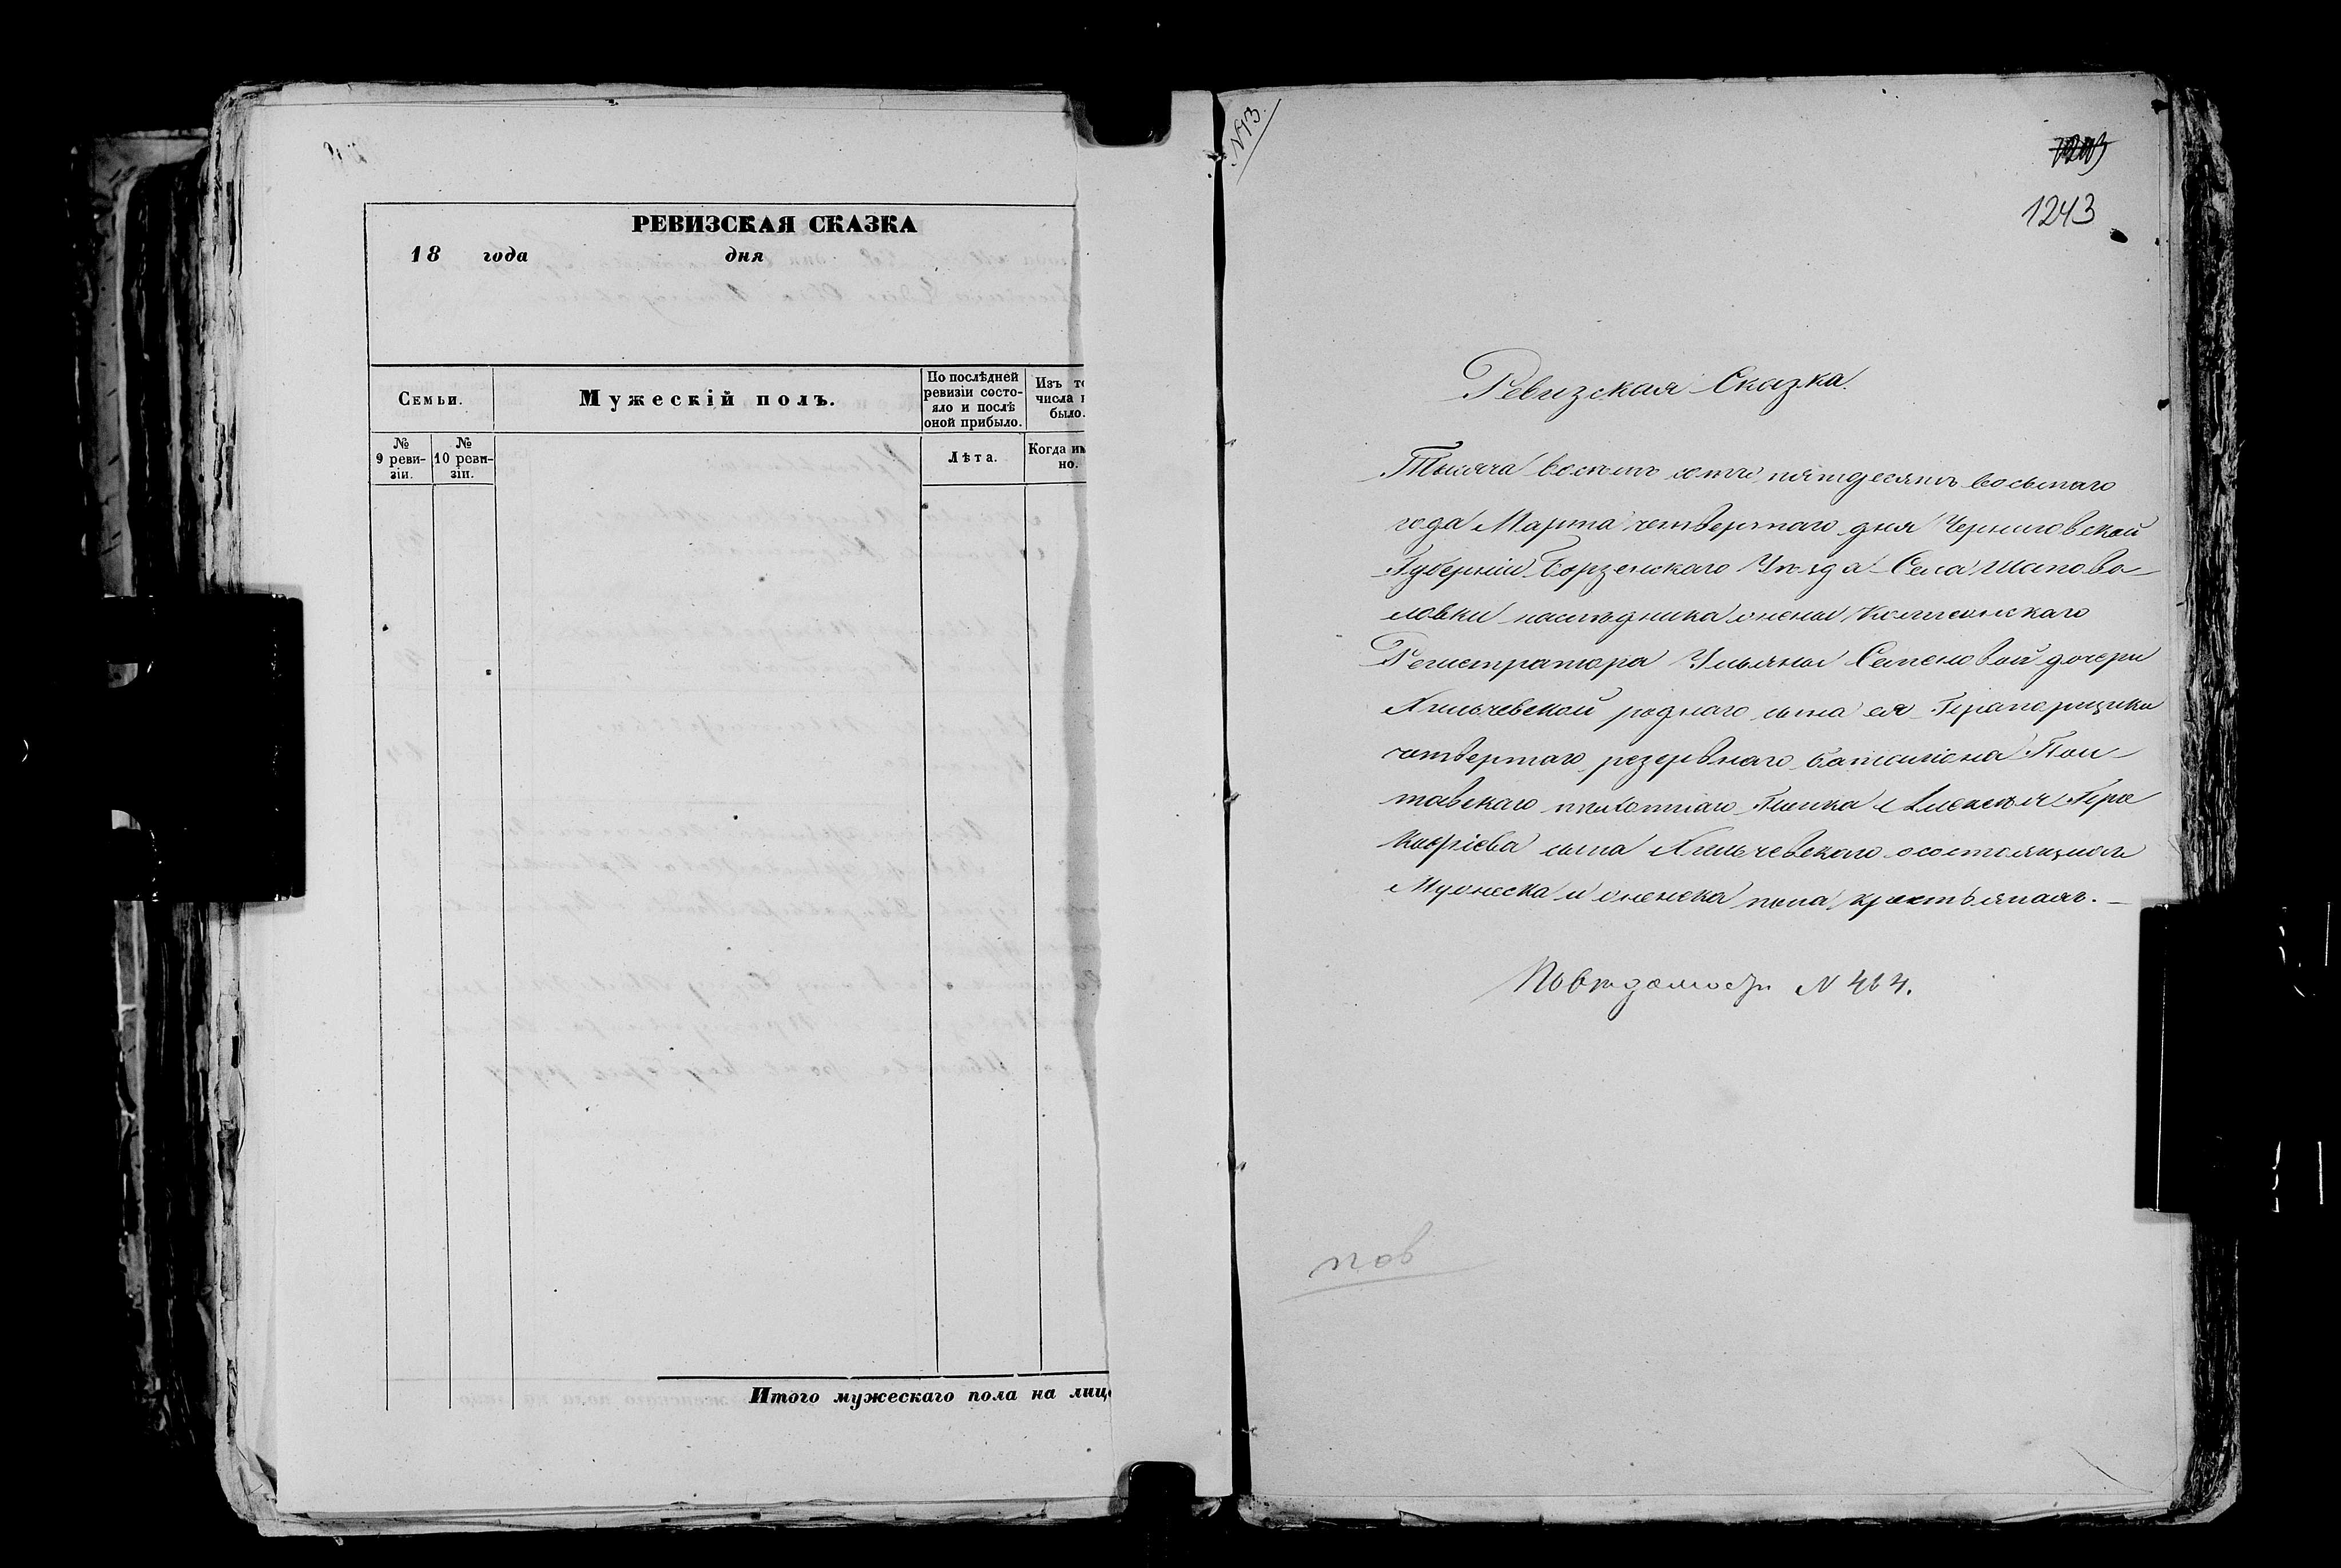 РЕВИЗСКАЯ СКАЗКА
18 года дня
Семьи.
Мужескій полъ.
По послѣдней
ревизіи состо-
яло и послѣ
оной прибыло.
Изъ
числа
было.
№
9 реви-
зіи.
№
10 реви-
зіи.
Лѣта.
Когда
но.
Итого мужескаго пола на лиц
№ 13.
1243
Ревизская Сказка.
Тысяча восемь сотъ пятдесятъ восьмаго
года Марта четвертаго дня Черниговской
Губерніи Борзенскаго Уѣзда Села Шапова-
ловки наслѣдника жены Коллежскаго
Регистратора Ульяны Семеновой дочери
роднаго сына ея Прапорщика
четвертаго резервнаго баталіона Пол-
тавскаго пѣхотнаго Полка Алексѣя Про
кофіева сына о состоящихъ
Мужеска и женска пола крестьянахъ. —
По вѣдомости N 414.
пов